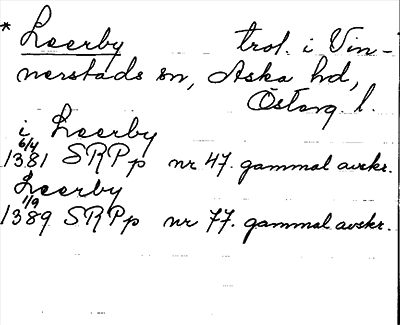 * Leerby trol. i Vin-
nerstads sn, Aska hd,
Östg l.
i Leerby
6/4
1381 SRPp nr 47. gammal avskr.
Leerby
1/9
1389 SRPp nr 77. gammal avskr.